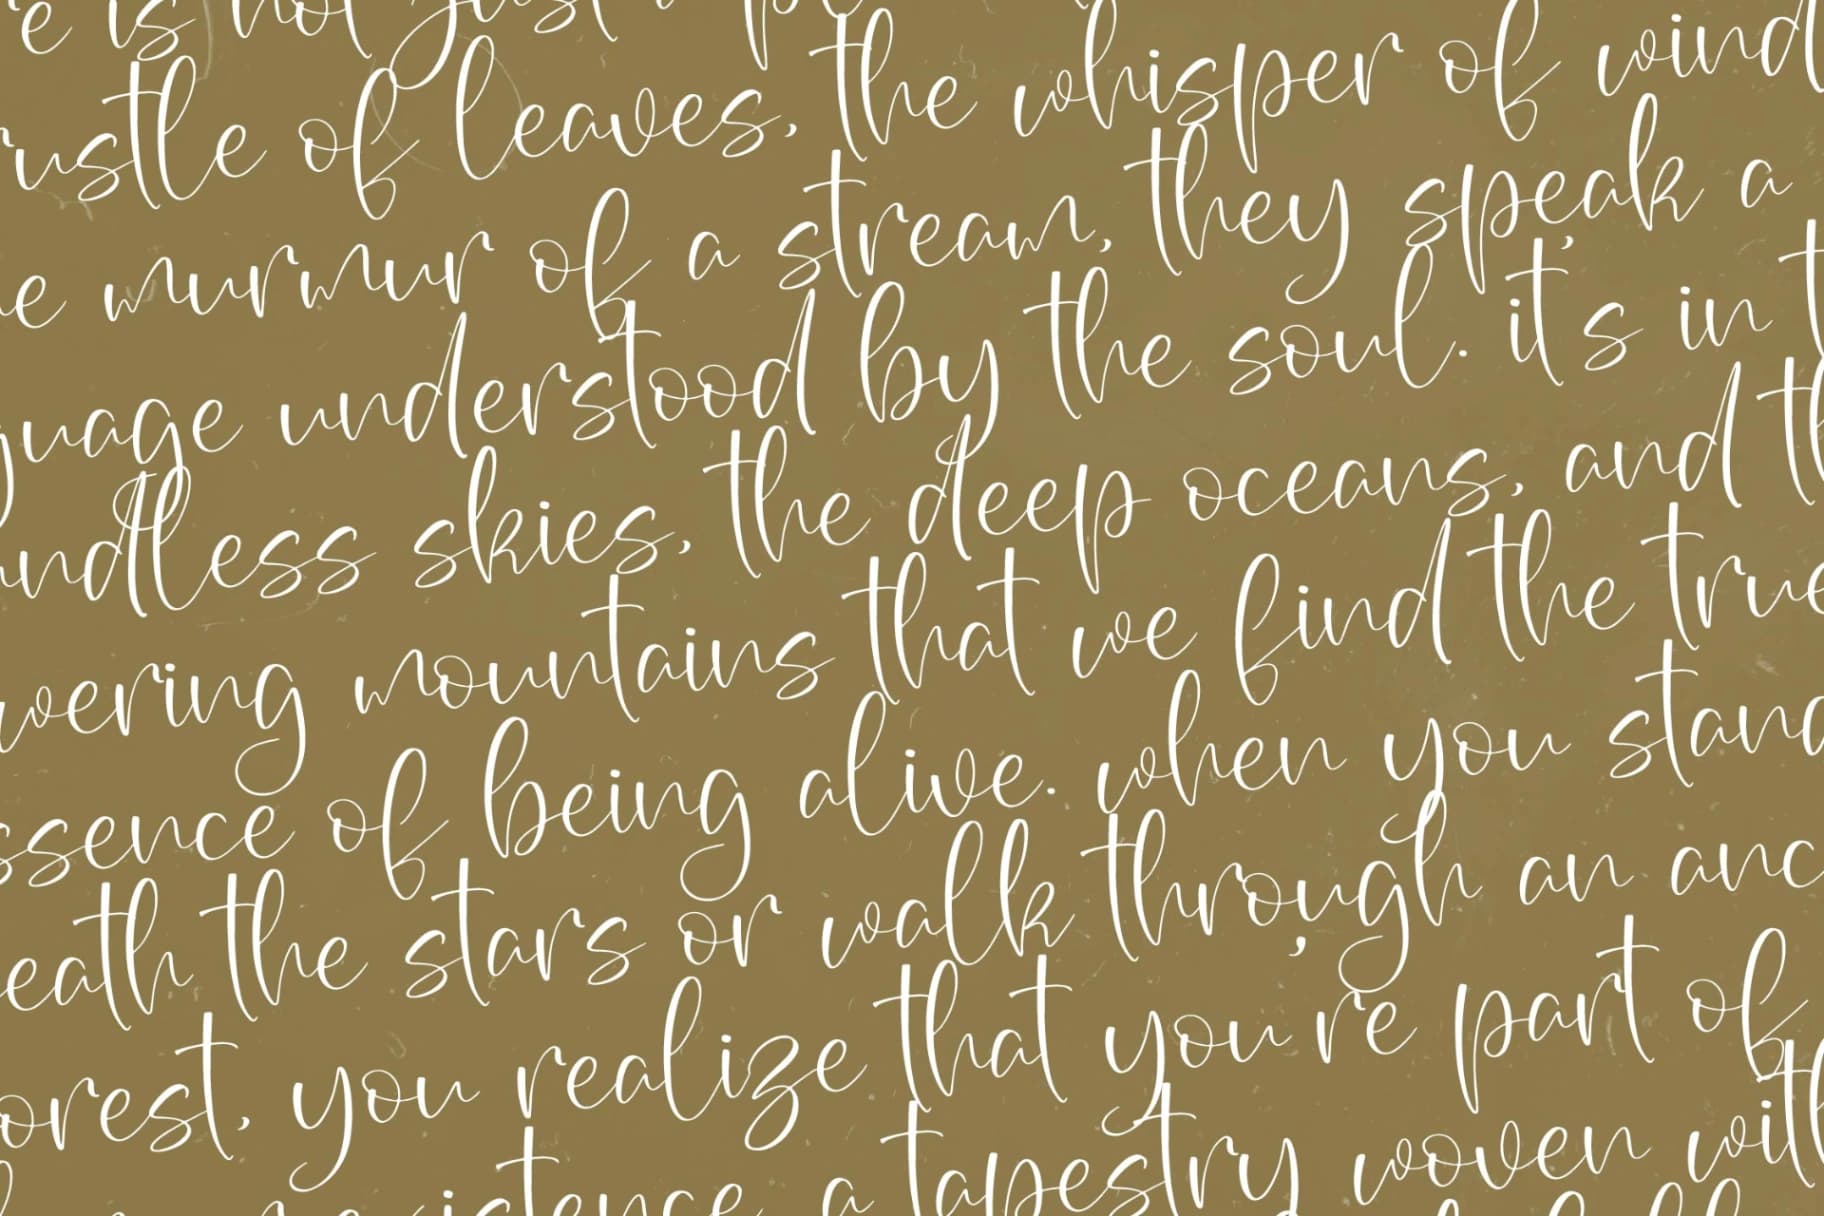 is not just a
rustle of leaves, the whisper of wind
murmur of a stream, they speak a
guage understood by the soul. it's in t
endless skies, the deep oceans, and th
wering mountains that we find the true
ssence of being alive. when you stand
eath the stars or walk through an anc
orest, you realize that you're part of
existence, a tapestry woven with